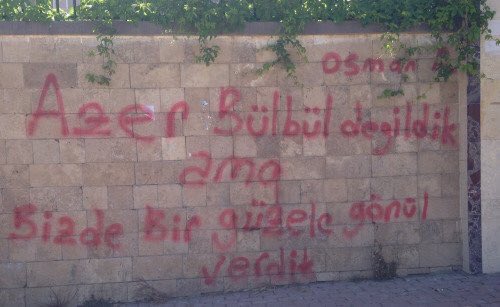 osman
Azer Bülbül değildik
ama
Bizde Bir güzele gönül
verdik